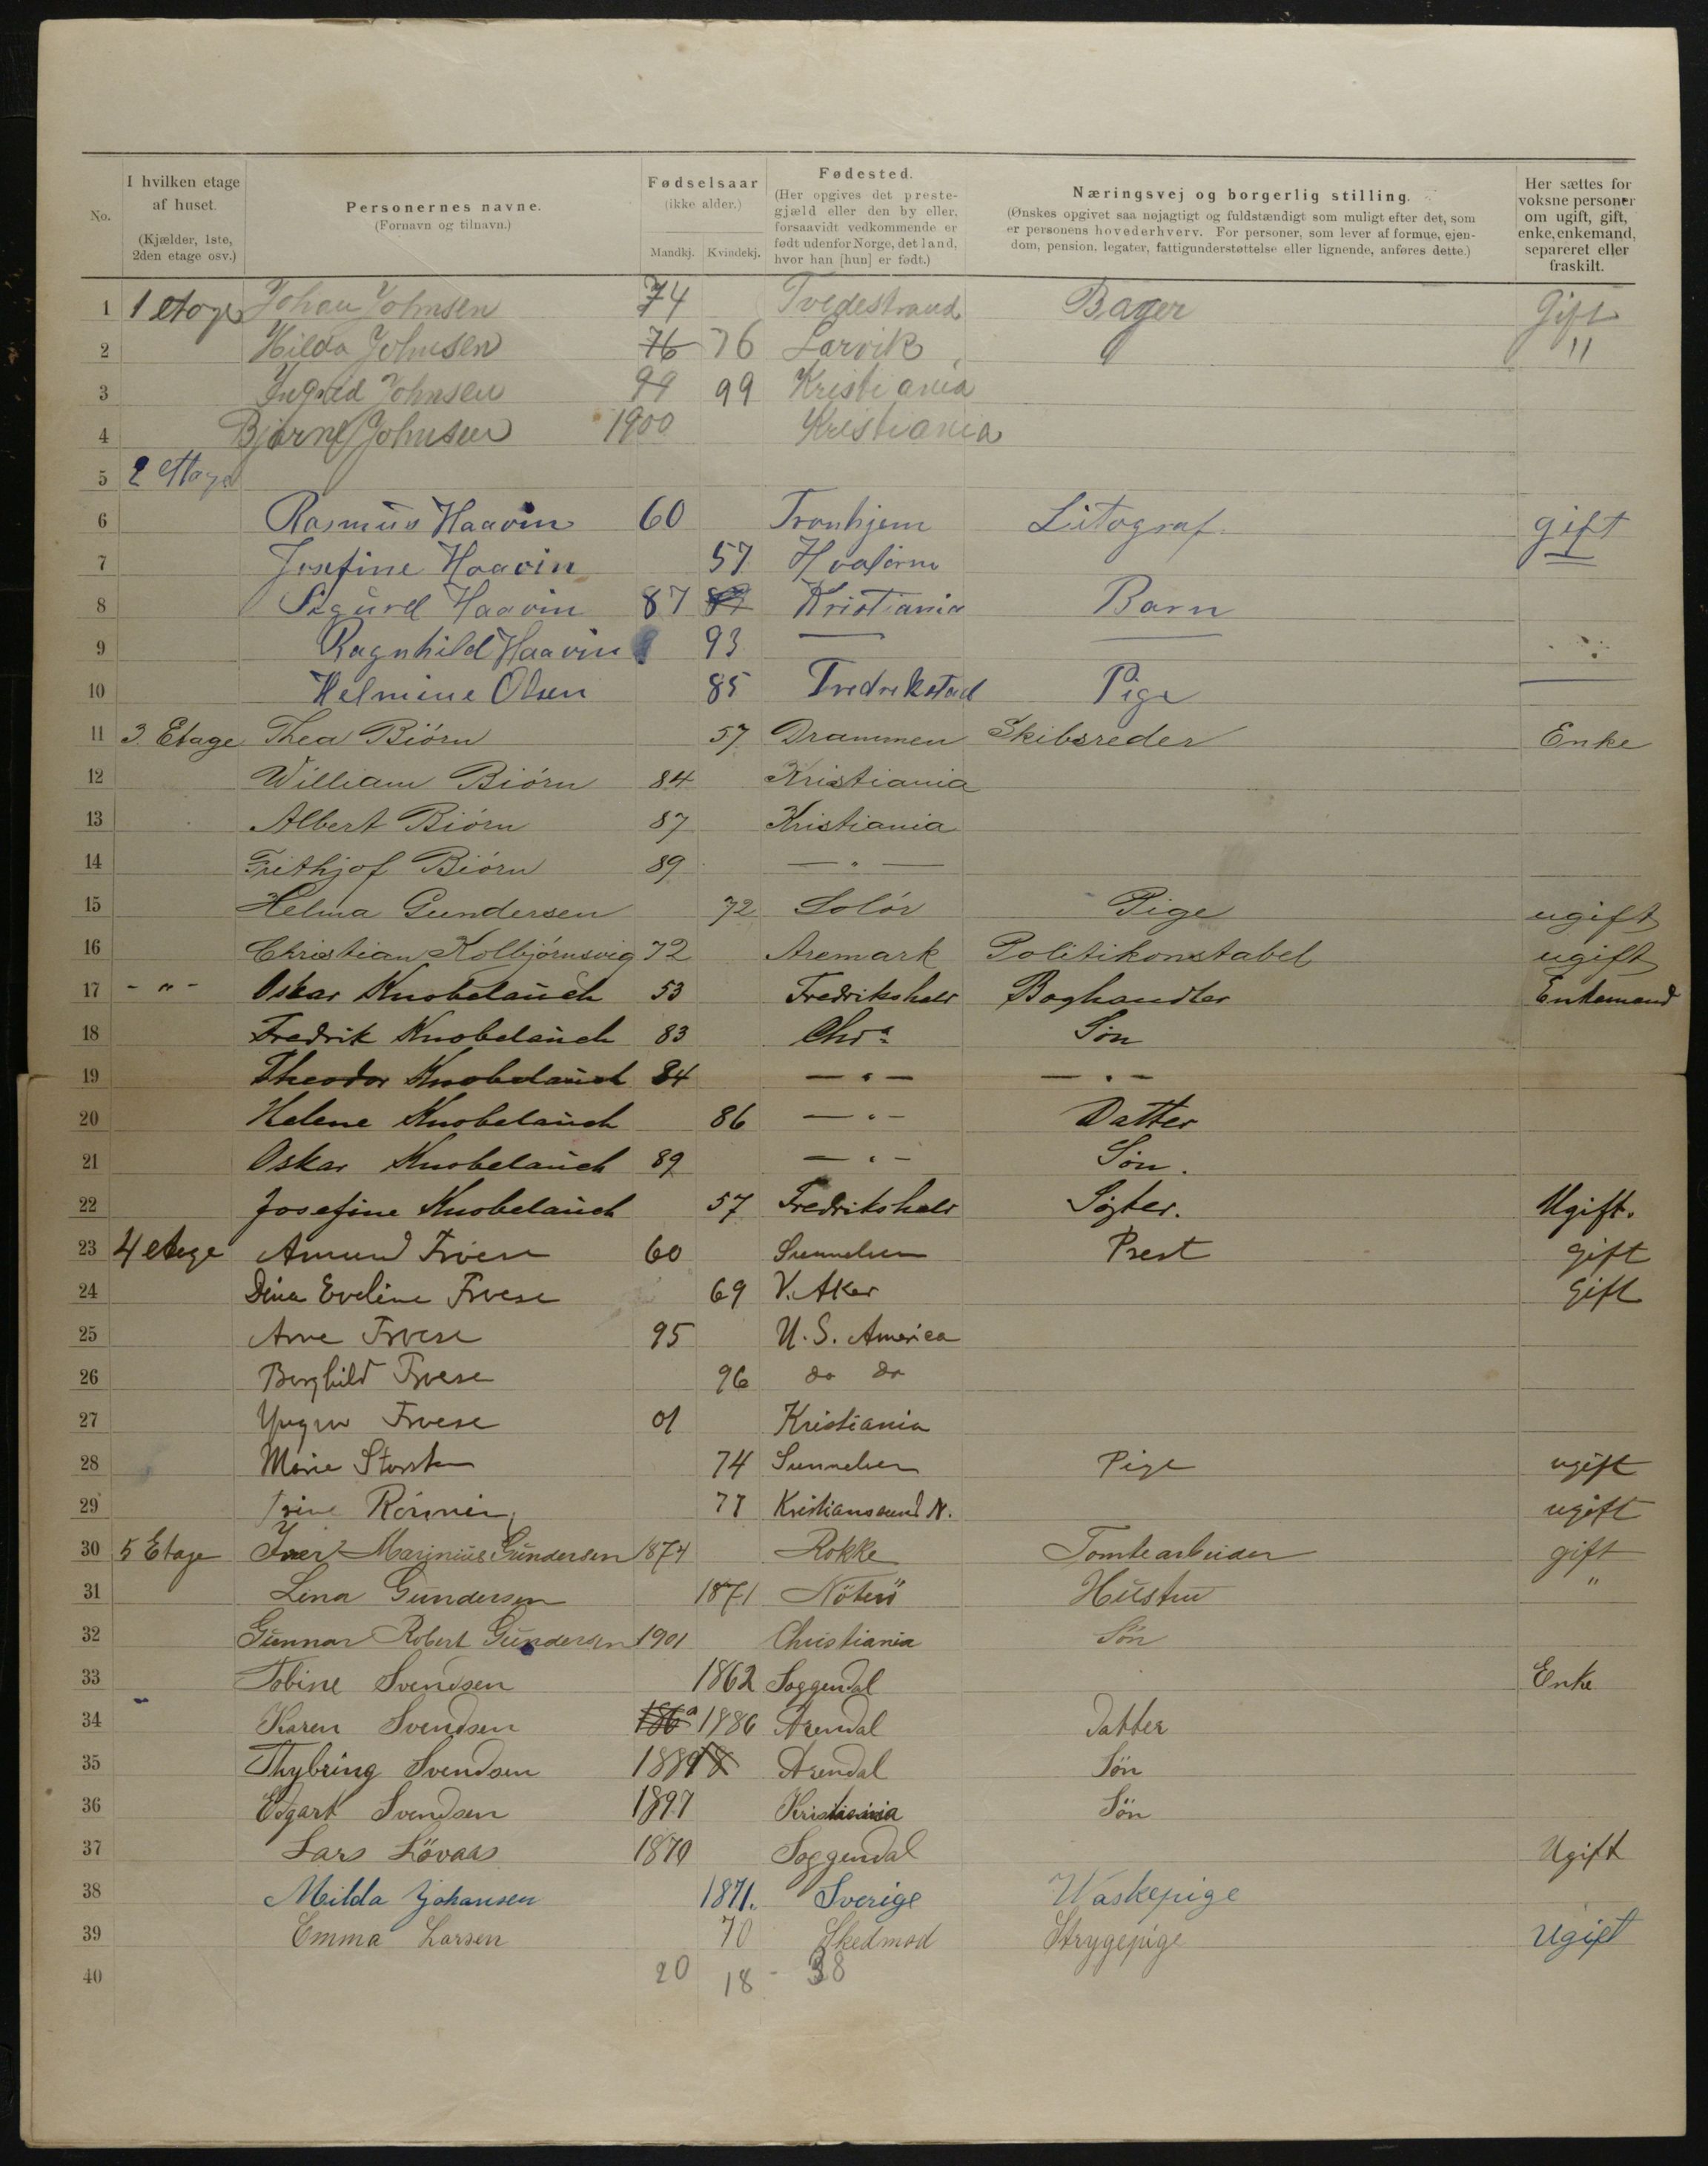 No.
I hvilken etage af huset. (Kjælder, 1ste, 2den etage osv.)
Personernes navne. (Fornavn og tilnavn.)
Fødselsaar (ikke alder.) Mandkj. Kvindekj.
Fødested. (Her opgives det prestegjæld eller den by eller, forsaavidt vedkommende er født udenfor Norge, det land, hvor han [hun] er født.)
Næringsvej og borgerlig stilling. (Ønskes opgivet saa nøjagtigt og fuldstændigt som muligt efter det, som er personens hovederhverv. For personer, som lever af formue, ejendom, pension, legater, fattigunderstøttelse eller lignende, anføres dette.)
Her sættes for voksne personer om ugift, gift, enke, enkemand, separeret eller fraskilt.
1 1 etage Johan Johnsen 74 Tvedestrand Bager Gift
2 Hilda Johnsen 76 76 Larvik "
3 Ingrid Johnsen 99 99 Kristiania
4 Bjarne Johnsen 1900 Kristiania
5 2 Etage
6 Rasmus Haavin 60 Tronhjem Litograf gift
7 Josefine Haavin 57 Hvalørne
8 Sigurd Haavin 87 Kristiania Barn
9 Ragnhild Haavin 93 — —
10 Helmine Olsen 85 Fredrikstad Pige
11 3 Etage Thea Biørn 57 Drammen Skibsreder Enke
12 William Biørn 84 Kristiania
13 Albert Biørn 87 Kristiania
14 Frithjof Biørn 89 — " —
15 Helma Gundersen 72 Solør Pige ugift
16 Christian Kolbjørnsvig 72 Aremark Politikonstabel ugift
17 - " - Oskar Knobelauch 53 Fredrikshald Boghandler Enkemand
18 Fredrik Knobelauch 83 Chra Søn
19 Theodor Knobelauch 84 — " — — " —
20 Helene Knobelauch 86 — " — Datter
21 Oskar Knobelauch 89 — " — Søn.
22 Josefine Knobelauch 57 Fredrikshald Søster. Ugift.
23 4 etage Amund Froese 60 Sunnelven Prest gift
24 Dina Eveline Froese 69 V. Aker Gift
25 Arne Froese 95 U. S. America
26 Borghild Froese 96 do do
27 Yngve Froese 01 Kristiania
28 Marie 74 Sunnelven Pige ugift
29 77 Kristiansund N. ugift
30 5 Etage Iver Marinius Gundersen 1874 Rokke Tomtearbeider gift
31 Lina Gundersen 1871 Nöterö Hustru "
32 Gunnar Robert Gundersen 1901 Christiania Sön
33 Tobine Svendsen 1862 Soggendal Enke
34 Karen Svendsen 186 1886 Arendal Datter
35 Thybring Svendsen 1889 Arendal Sön
36 Edgart Svendsen 1897 Kristiania Sön
37 Lars Lövaas 1870 Soggendal Ugift
38 Milda Johansen 1871. Sverige Vaskepige
39 Emma Larsen 70 Skedmod Strygepige Ugift
40 20 18 - 38